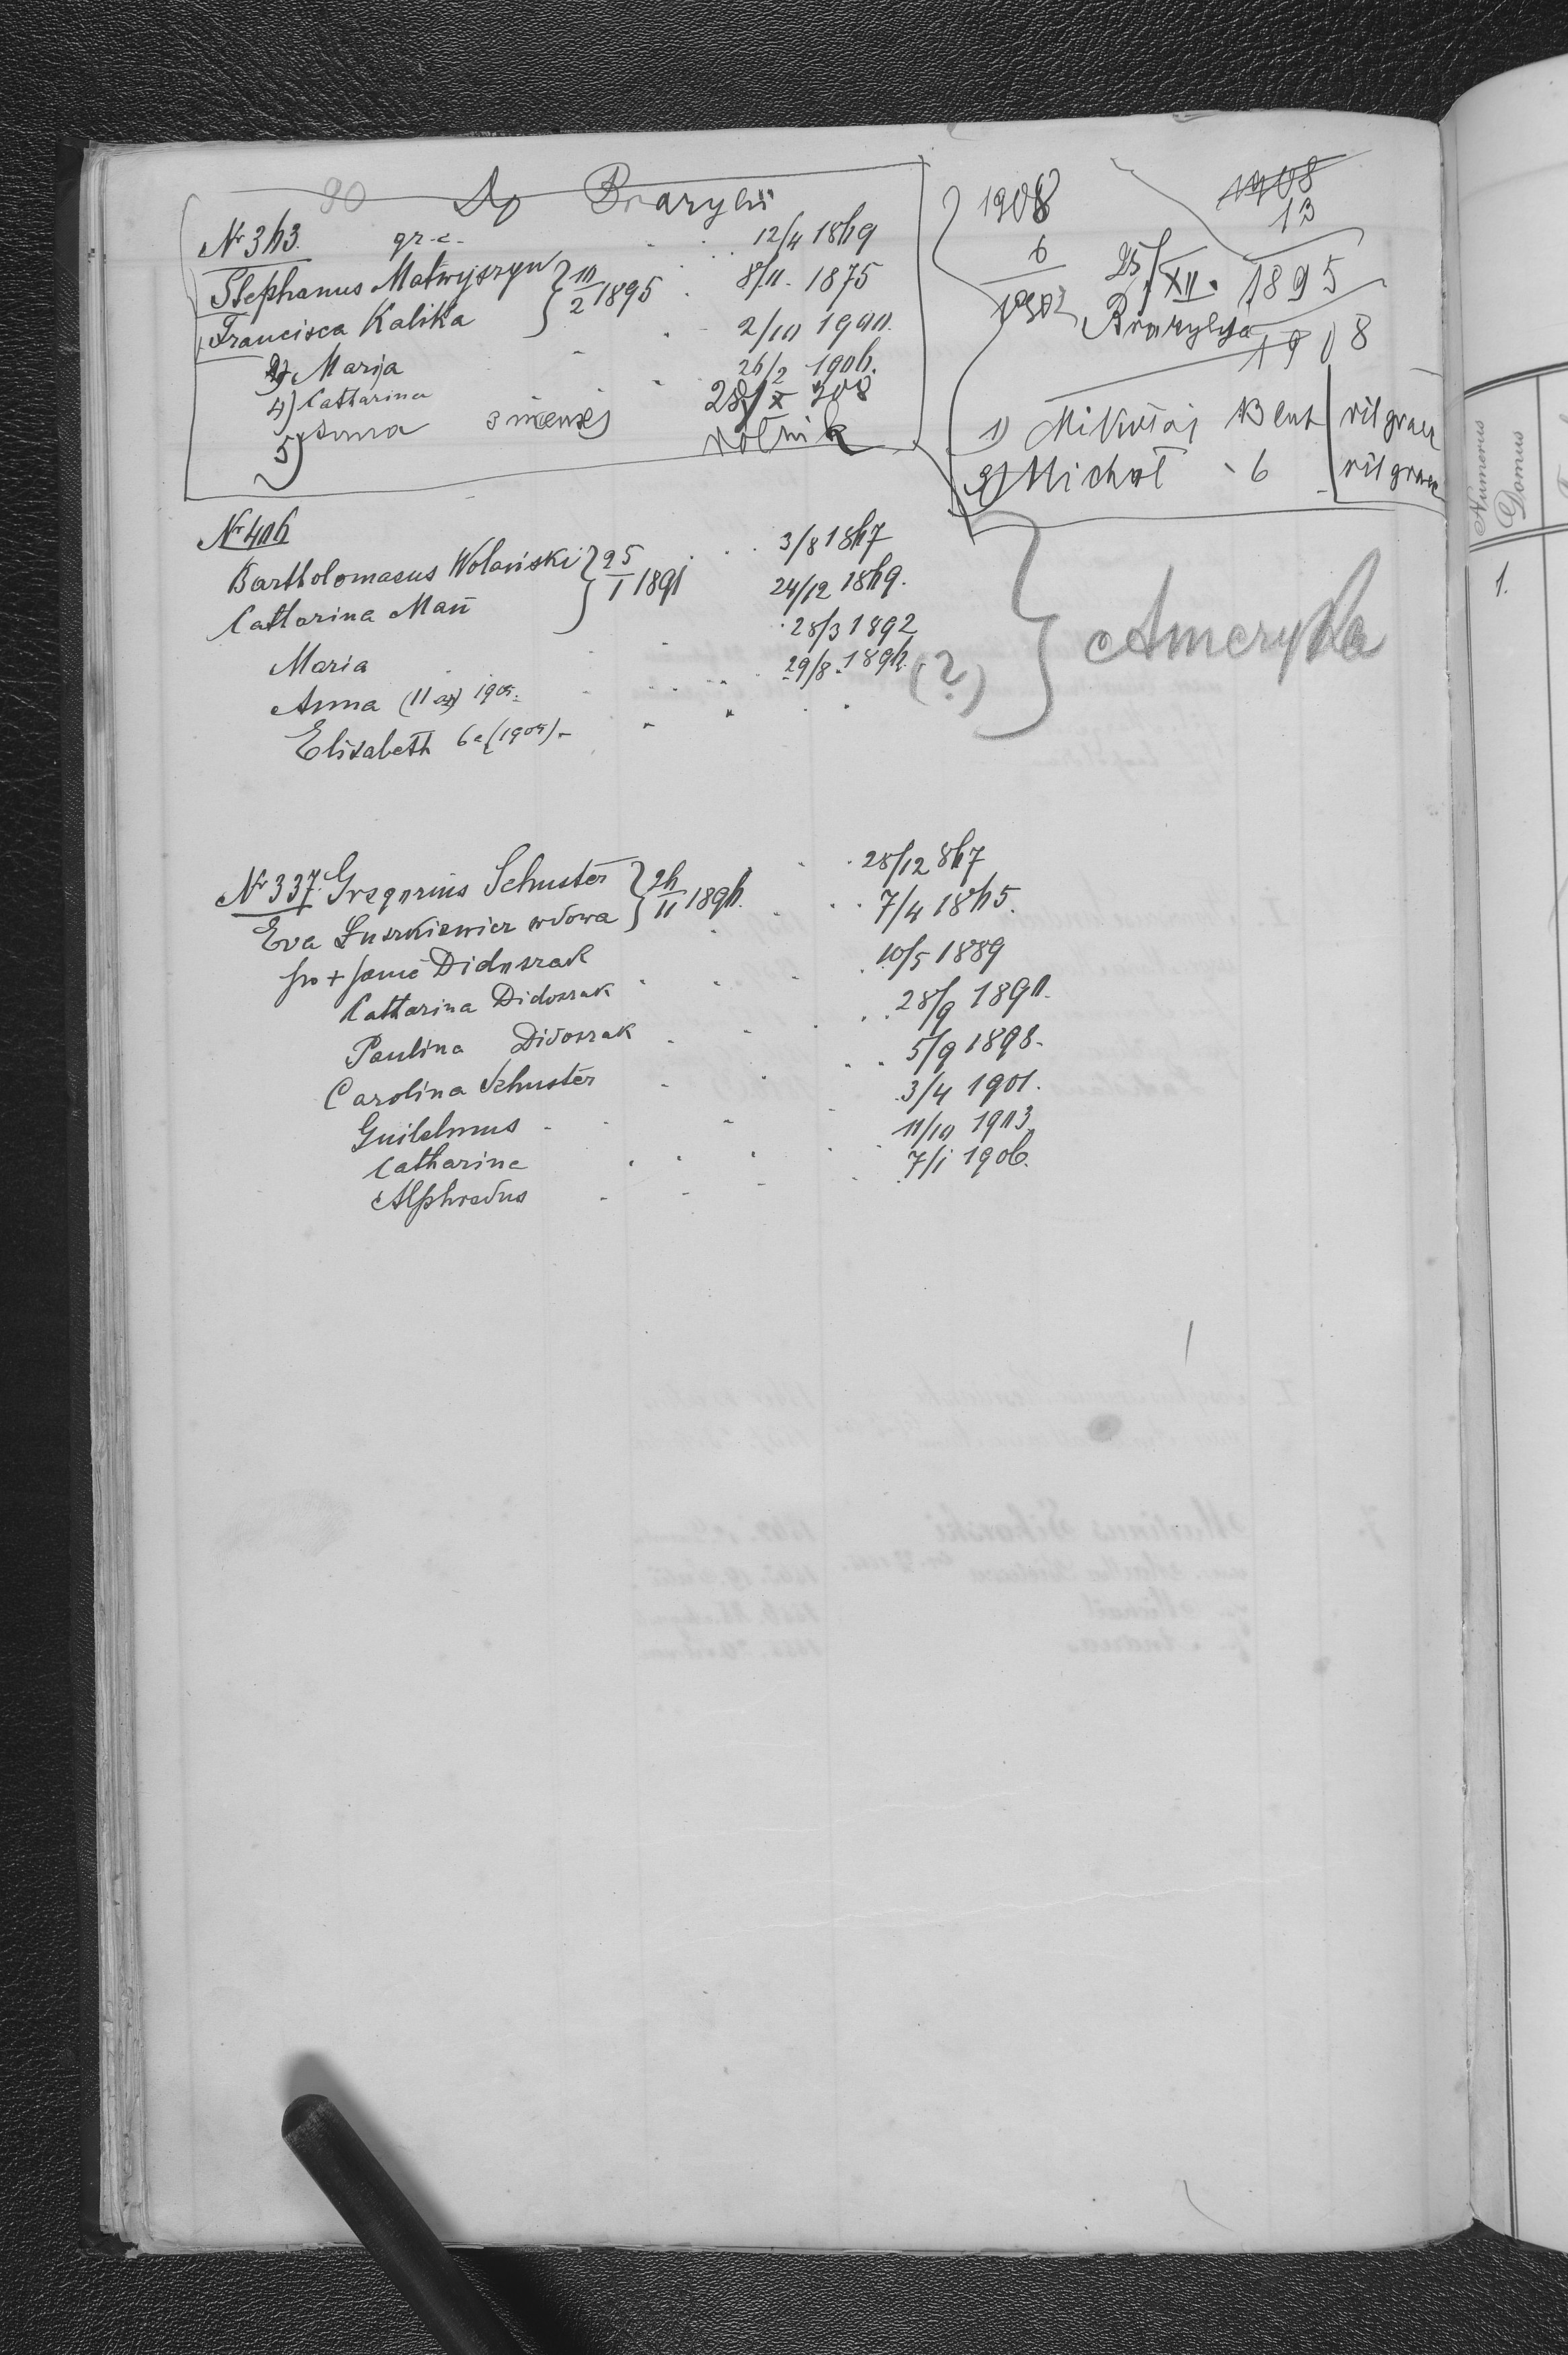 90 Do Brazylii
Nr 363. gr. c. 12/4 1869
Stephanus Matwijszyn } 10/2 1895 8/11. 1875
Francisca Kalika 2/10 1900.
3) Marija 26/2 1906.
4) Catharina 28/X 908
5) Anna 3 menses rolnik
1908
6
1908
13
25/XII. 1895
Brazylija
1908
1) Mikołaj 13 lat rit graec
2) Michał - 6 rit graec
Nr 406
Bartholomaeus Wolański } 25/I 1891 3/8 1867
Catharina Mań 24/12 1869.
Maria 28/3 1892
Anna (11 a) 1905. 29/8. 1894. (?)
Elisabeth 6 a (1905) -
} Ameryka
Nr 337. Gregorius Schuster } 26/11 1896. 28/12 867
Eva Łuszkiewicz wdowa 7/4 1865.
po + Didoszak
Catharina Didoszak 10/5 1889
Paulina Didoszak 28/9 1890.
Carolina Schuster 5/9 1898.
Guilelmus 3/4 1901.
Catharina 11/10 1903
Alphredus 7/1 1906.
Numerus
Domus
1.